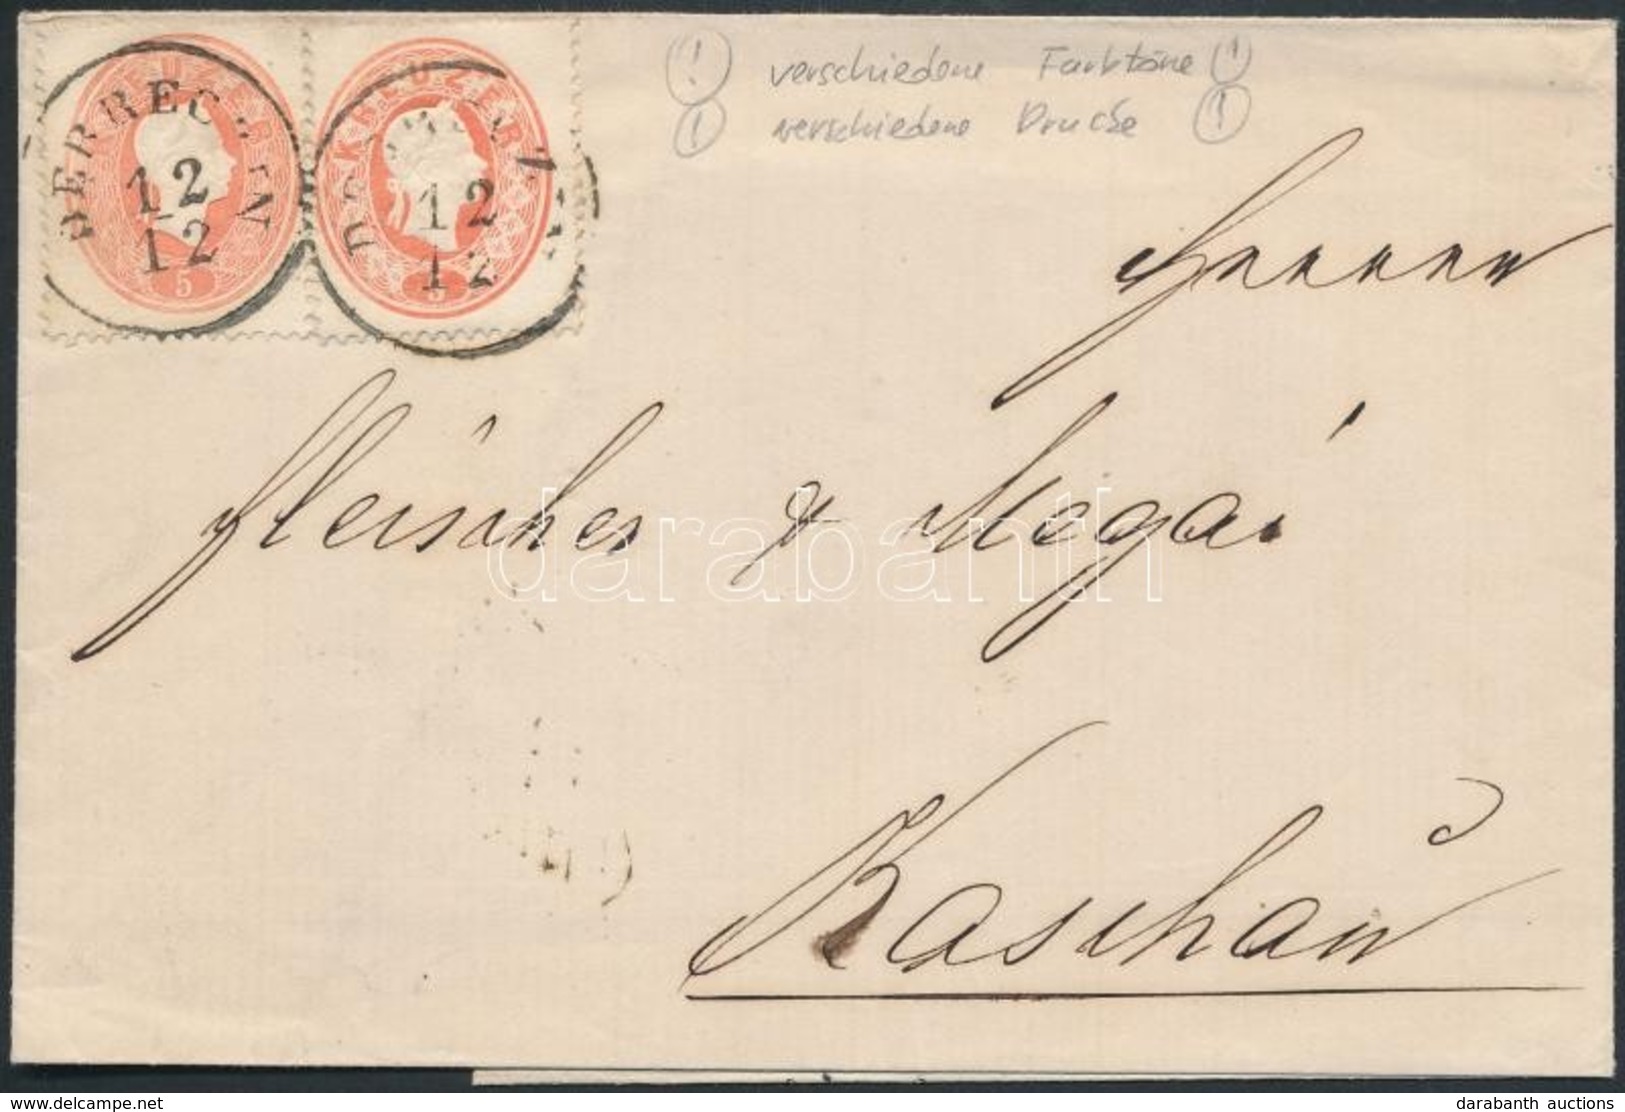 KREUZER KREUZER
DEBRECZIN
12
12
12
12
5
5
! verschiedene Farbtöne !
! verschiedene Drucke !
Herren
Fleischer & Megai
darabanth
Kaschau
delcampe.net
darabanth auctions